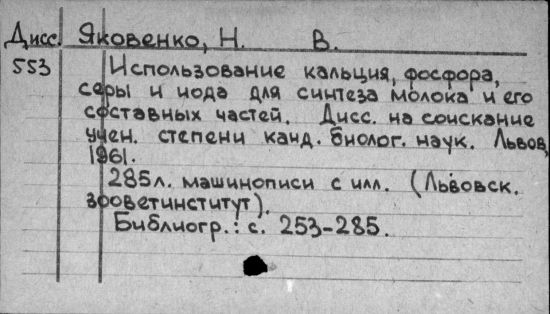 Дисс. Яковенко, Н. В.
553 Использование кальция, фосфора,
серы и иода для синтеза молока и его
составных частей. Дисс. на соискание
учен. степени канд. биолог. наук. Львов,
1961.
285л. машинописи с илл. (Львовск.
зооветинститут).
Библиогр.: с. 253-285.